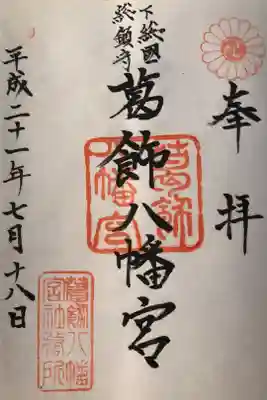 奉拝
下総國
総鎮守
葛飾八幡宮
葛飾八幡宮
平成二十一年七月十八日
葛飾八幡宮社務所